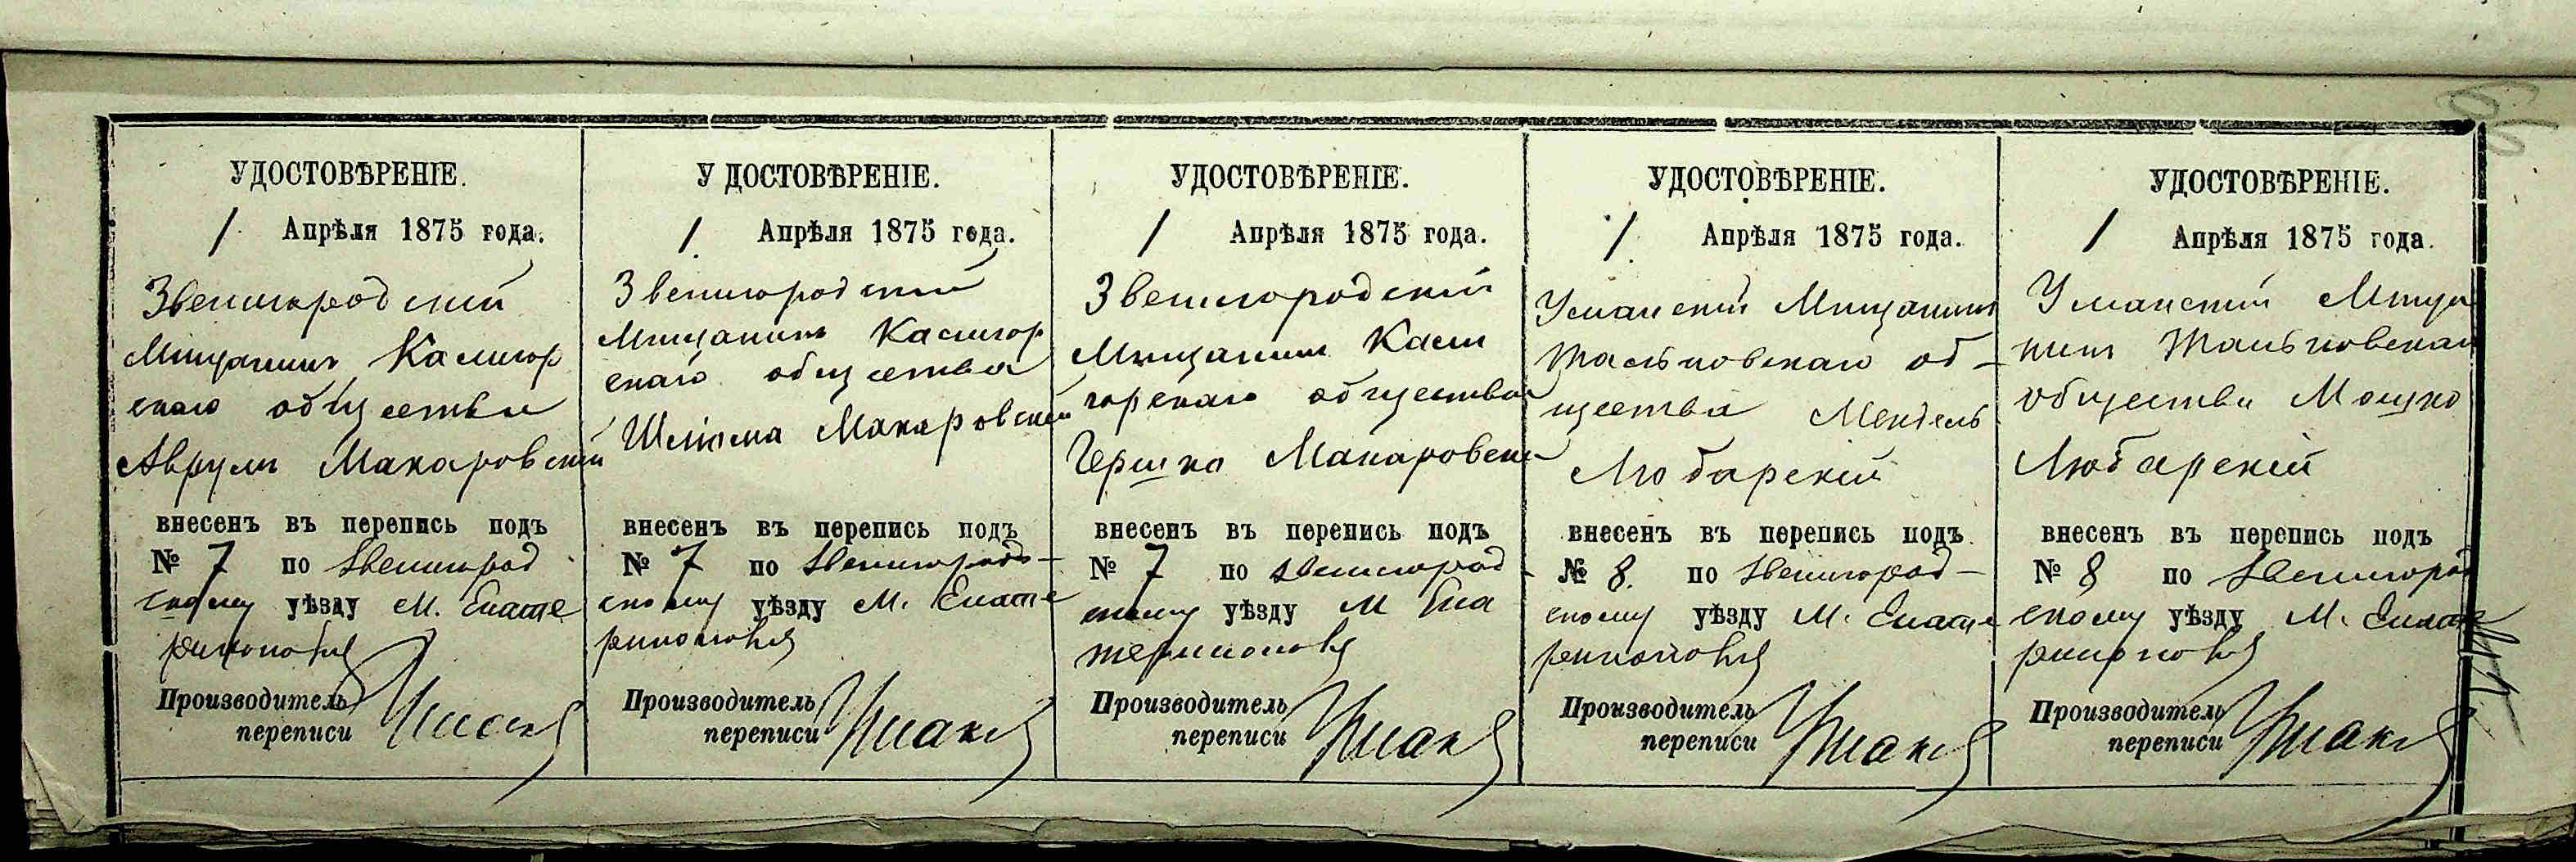 УДОСТОВѢРЕНІЕ.
1 Апрѣля 1875 года.
Звенигородскій
Мищанинъ Калигор
скаго общества
Аврумъ Макаровский
внесенъ въ перепись подъ
№ 7 по Звенигород
скому уѣзду М. Екате
ринополя
Производитель
переписи
У ДОСТОВѢРЕНІЕ.
1 Апрѣля 1875 года.
Звенигородский
Мищанинъ Калигор
скаго общества
Шлема Макаровский
внесенъ въ перепись подъ
№ 7 по Звенигород-
скому уѣзду М. Екате
ринополя
Производитель
переписи
УДОСТОВѢРЕНІЕ.
1 Апрѣля 1875 года.
Звенигородскій
Мищанинъ Кали
горскаго общества
Гершко Макаровский
внесенъ въ перепись подъ
№ 7 по Звенигород
скому уѣзду М Ека
теринополя
Производитель
переписи
УДОСТОВѢРЕНІЕ.
1 Апрѣля 1875 года.
Уманский Мищанинъ
Тальновскаго об-
щества Мендель
Любарскій
внесенъ въ перепись подъ
№ 8. по Звенигород-
скому уѣзду М. Екате
ринополя
Производитель
переписи
УДОСТОВѢРЕНІЕ.
1 Апрѣля 1875 года.
Уманский Мища
нинъ Тальновскаго
общества Мошко
Любарскій
внесенъ въ перепись подъ
№ 8 по Звенигород
скому уѣзду М. Екате
ринополя
Производитель
переписи